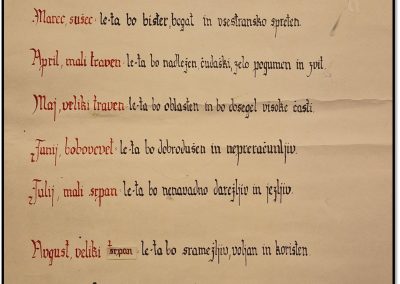 Marec, sušec: le-ta bo bister, bogat in vsestransko spreten.
April, mali traven: le-ta bo nadležen čudaški, zelo pogumen in zvit.
Maj, veliki traven: le-ta bo oblasten in bo dosegel visoke časti.
Junij, bobovcvet: le-ta bo dobrodušen in nepreračunljiv.
Julij, mali srpan: le-ta bo nenavadno darežljiv in jezljiv.
Avgust, veliki srpan: le-ta bo sramežljiv, voljan in koristen.